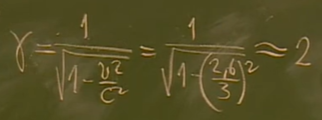 γ = 1/√(1 - v²/c²) = 1/√(1 - (2,6/3)²) ≈ 2